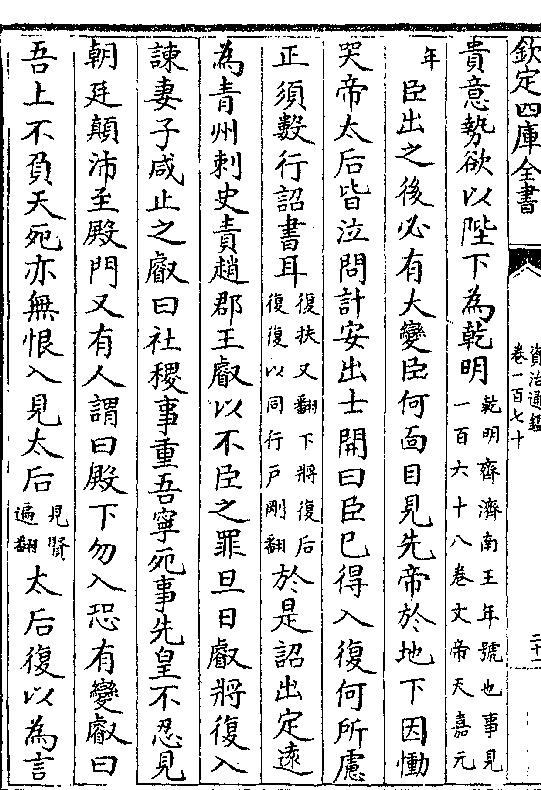 欽定四庫全書
資治通鑑
卷一百七十
貴意勢欲以陛下為乾明乾明齊濟南王年號也事見一百六十八卷文帝天嘉元
年臣出之後必有大變臣何面目見先帝於地下因慟
哭帝太后皆泣問計安出士開曰臣已得入復何所慮
正須數行詔書耳復扶又翻下將復后復復以同行戶剛翻於是詔出定遠
為青州刺史責趙郡王叡以不臣之罪旦日叡將復入
諫妻子咸止之叡曰社稷事重吾寧死事先皇不忍見
朝廷顛沛至殿門又有人謂曰殿下勿入恐有變叡曰
吾上不負天死亦無恨入見太后見賢遍翻太后復以為言